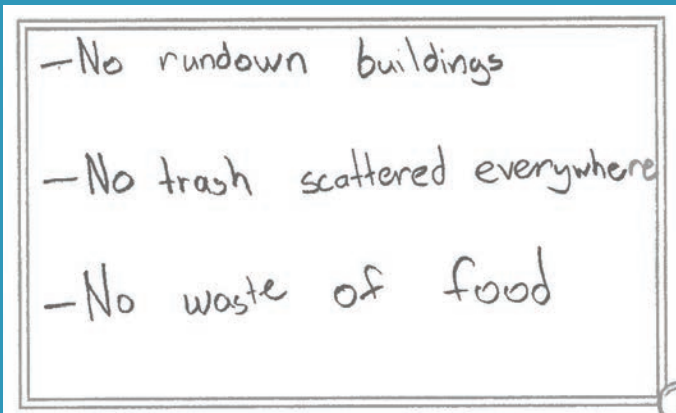 -No rundown buildings
-No trash scattered everywhere
-No waste of food